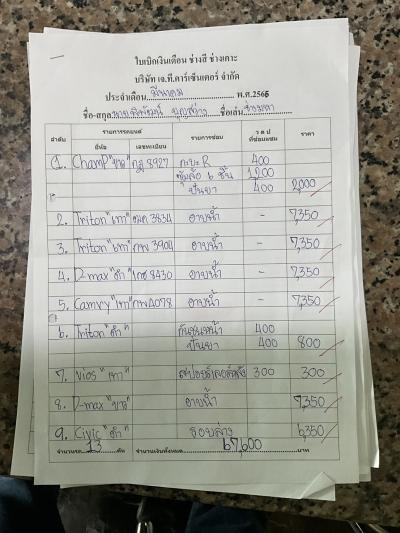 ใบเบิกเงินเดือน ช่างสี ช่างเคาะ
บริษัท เจ.ที.คาร์เซ็นเตอร์ จำกัด
ประจำเดือน มีนาคม พ.ศ.2565
ชื่อ-สกุล บุญสว่าง ชื่อเล่น
ลำดับ รายการรถยนต์ รายการซ่อม ว ด ป ที่ซ่อมแซม ราคา
ยี่ห้อ เลขทะเบียน
1. Champ "ขาว" กฎ 8927 กะบะ R 400
ซุ้มล้อ 6 ชิ้น 1,200
ปั้นยา 400 2,000
2. Triton "เทา" 3834 อาบน้ำ - 7,350
3. Triton "เทา" 3904 อาบน้ำ - 7,350
4. D-max "ดำ" 8430 อาบน้ำ - 7,350
5. Camry "เทา" 4078 อาบน้ำ - 7,350
6. Triton "ดำ" กันชนหน้า 400
ปั้นยา 400 800
7. Vios "เทา" สปอยเลอร์หลัง 300 300
8. D-max "ขาว" อาบน้ำ 7,350
9. Civic "ดำ" รอบล่าง 6,350
จำนวนรถ 13 คัน จำนวนเงินทั้งหมด 67,600 บาท